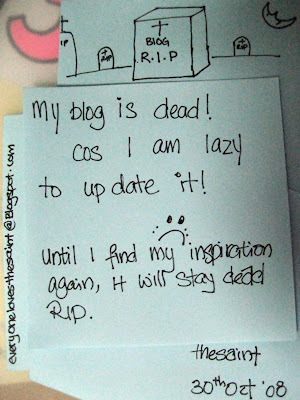 IP
RIP
BLOG
R.I.P
RIP
my blog is dead!
cos I am lazy
to update it!
until I find my inspiration
again, it will stay dead
R.I.P.
thesaint
30th Oct '08
everyonelovesthesaint@Blogspot.com